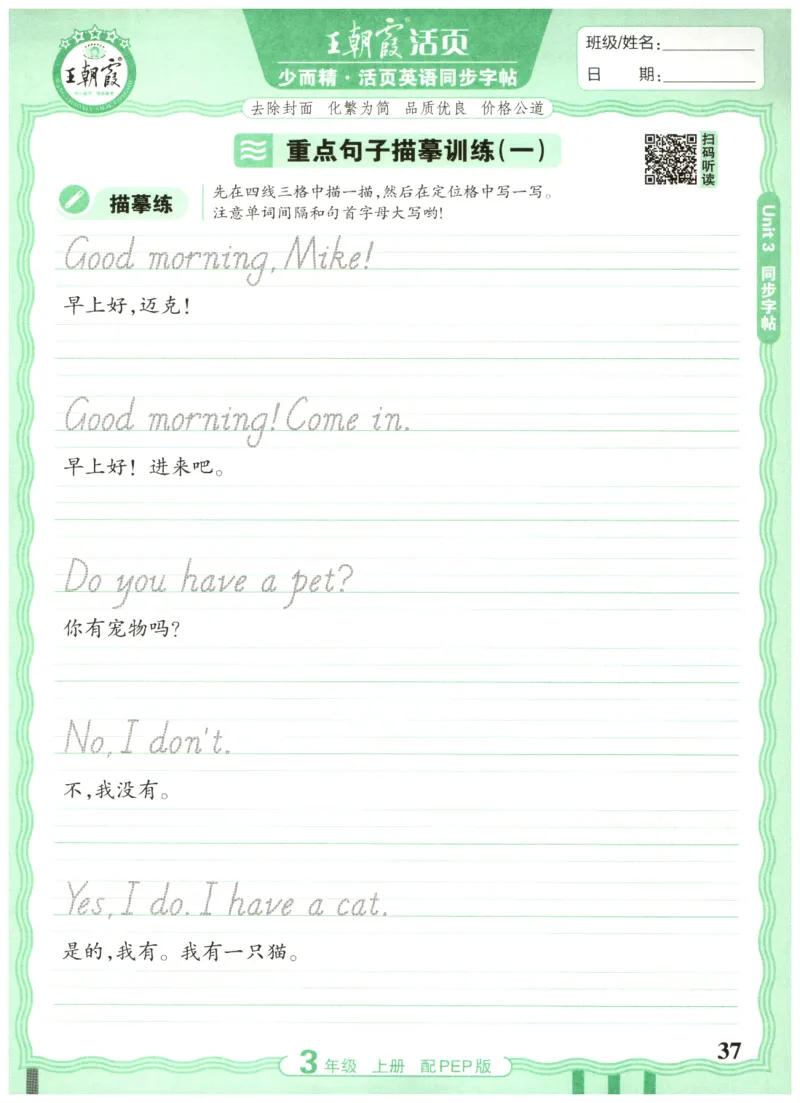 王朝霞
王朝霞活页
少而精·活页英语同步字帖
班级/姓名:
日 期:
去除封面 化繁为简 品质优良 价格公道
重点句子描摹训练(一)
扫码听读
描摹练
先在四线三格中描一描,然后在定位格中写一写。
注意单词间隔和句首字母大写哟!
Unit 3 同步字帖
Good morning, Mike!
早上好,迈克!
Good morning! Come in.
早上好! 进来吧。
Do you have a pet?
你有宠物吗?
No, I don't.
不,我没有。
Yes, I do. I have a cat.
是的,我有。我有一只猫。
37
3年级 上册 配PEP版